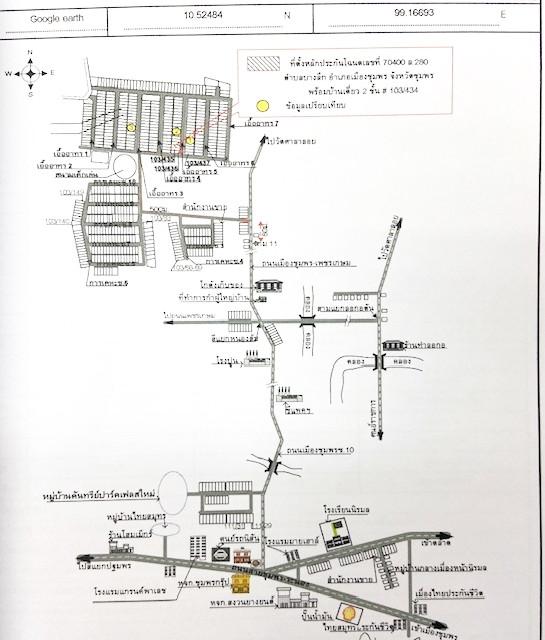 Google earth 10.52484 N 99.16693 E
N
W E
S
ที่ตั้งหลักประกันโฉนดเลขที่ 70400 ล.280
ตำบลบางลึก อำเภอเมืองชุมพร จังหวัดชุมพร
พร้อมบ้านเดี่ยว 2 ชั้น # 103/434
ข้อมูลเปรียบเทียบ
เอื้ออาทร 7
ไปวัดศาลาลอย
เอื้ออาทร 1
เอื้ออาทร 2
สนามเด็กเล่น
103/435
103/436
103/437
เอื้ออาทร 6
เอื้ออาทร 5
เอื้ออาทร 4
เอื้ออาทร 3
สำนักงานขาย
103/149
103/140
ไปวัดศาลาลอย
กม.11
การเคหะซ.4
การเคหะซ.6
ถนนเมืองชุมพร-เพชรเกษม
โกดังเก็บของ
ที่ทำการกำผู้ใหญ่บ้าน
ไปถนนเพชรเกษม
คลอง
คลอง
สามแยกลอกอตัน
สี่แยกหนองส้ม
โรงปูน
ร้านท่าลอกอ
คลอง
คลอง
ซีแพคฯ
ศูนย์ราชการ
ถนนเมืองชุมพรซ.10
หมู่บ้านคันทรีย์ปาร์คเฟสใหม่
หมู่บ้านไทยสมุทร
ร้านโฮมเม็กร์
ศูนย์รถนิสัน
โรงแรมมายเฮาส์
โรงเรียนนิรมล
เข้าตลาด
ไปสี่แยกปฐมพร
สำนักงานขาย
หมู่บ้านกลางเมืองหน้านิรมล
โรงแรมแกรนด์พาเลซ
หจก.ชุมพรกรุ๊ป
หจก.สงวนยางยนต์
ปั๊มน้ำมัน
ไทยสมุทรประกันชีวิต
เมืองไทยประกันชีวิต
เข้าเมืองชุมพร